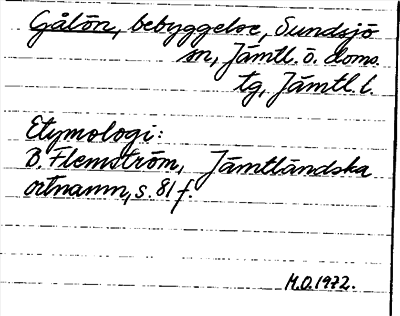 Gålön, bebyggelse, Sundsjö
sn, Jämtl. ö. doms.
tg, Jämtl. l.
Etymologi:
B. Flemström, Jämtländska
ortnamn, s. 81 f.
M.O. 1972.